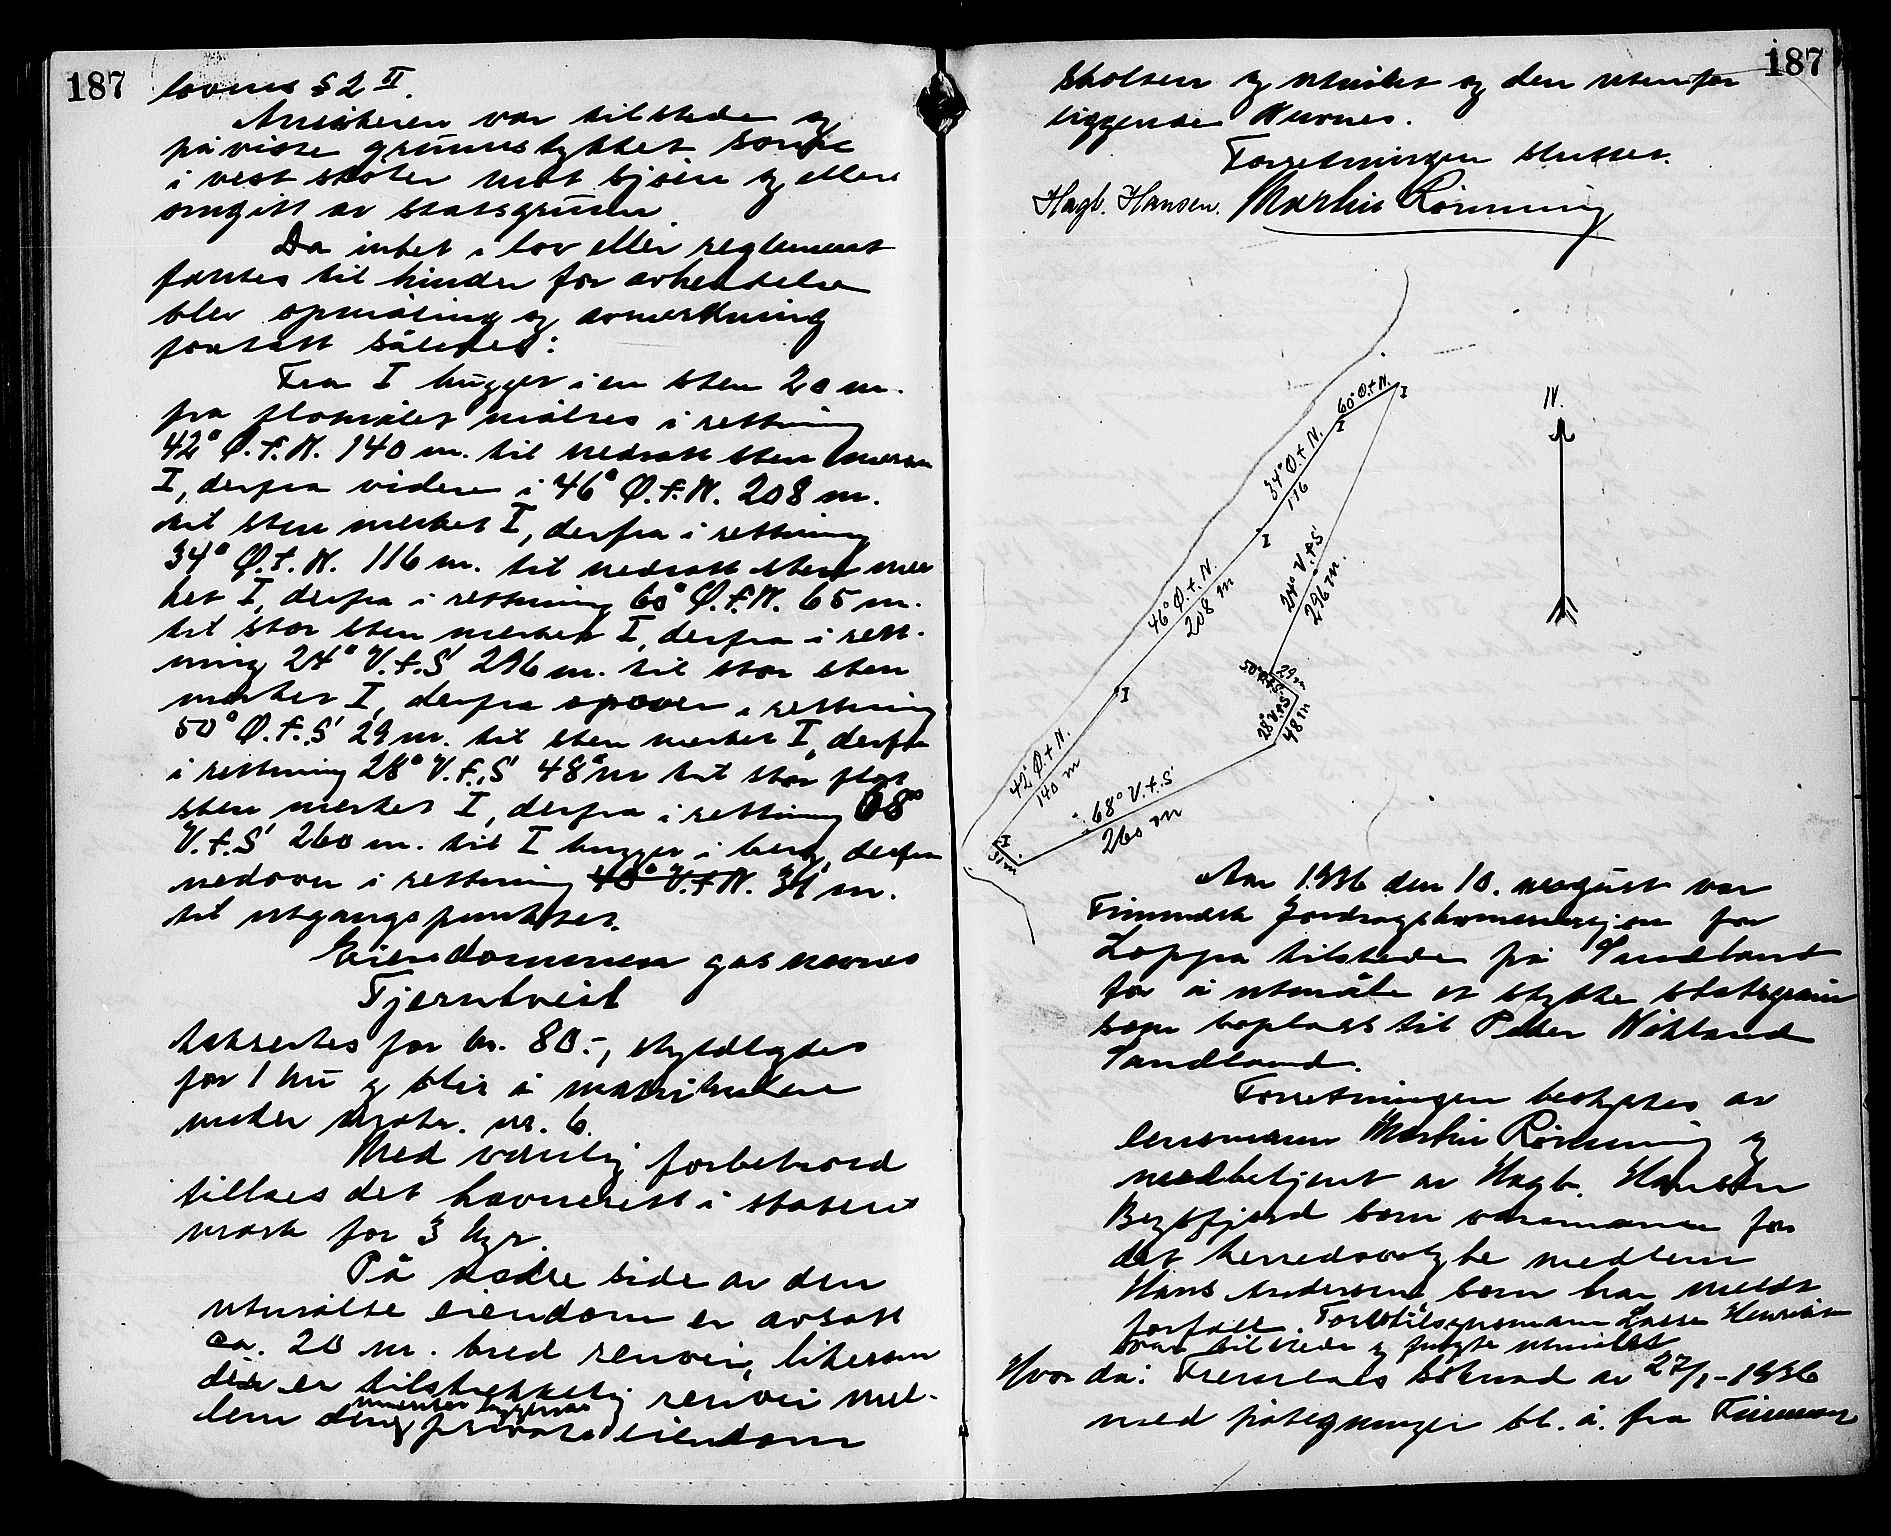 187
lovens § 2 II.
Ansökeren var tilstede og
påviste grunnstykket som
i vest støter mot sjøen og ellers
omgitt av statsgrunn.
Da intet i lov eller reglement
fantes til hinder for avhendelse
blev opmåling og avmerkning
foretatt således:
Fra I hugget i en sten 20 m.
fra flomålet måltes i rettning
42° Ø.f.N. 140 m. til nedsatt sten merket
I, derfra videre i 46° Ø.f.N. 208 m.
til sten merket I, derfra i rettning
34° Ø.f.N. 116 m. til nedsatt sten mer
ket I, derfra i rettning 60° Ø.f.N. 65 m.
til stor sten merket I, derfra i rett-
ning 24° V.f.S 296 m. til stor sten
merket I, derfra opover i rettning
50° Ø.f.S 29 m. til sten merket I, derfra
i rettning 28° V.f.S 48 m til stor flat
sten merket I, derfra i rettning 68°
V.f.S 260 m. til I hugget i berg, derfra
nedover i rettning 40° V.f.N. 31 m.
til utgangspunktet.
Eiendommen gas navnet
Fjerntveit
taksertes for kr. 80.-, skyldlagdes
for 1 øre og blir å matrikulere
under gbr. nr. 6.
Med vanlig forbehold
tillaes det havnerett i statens
mark for 3 kyr.
På nedre side av den
utmålte eiendom er avsatt
ca. 20 m. bred renvei, likesom
der er tilstrekkelig renvei mel-
nunder liggende
lem den private eiendom
187
Skolten og utmålet og den utenfor
liggende Nurnes.
Forretningen sluttet.
Hagb. Hansen. Martin Rönning
N.
60° Ø.f.N.
I
I
34° Ø.f.N.
116
I
24° V.f.S
296 m.
46° Ø.f.N.
208 m
50° Ø.f.S.
29 m
28° V.f.S
48 m
I
42° Ø.f.N.
140 m
68° V.f.S
260 m
I
31 m.
Aar 1936 den 10. august var
Finnmark Jordsagskommisjon for
Loppa tilstede på Sandland
for å utmåle et stykke statsgrunn
som boplass til Peder Wikland
Sandland.
Forretningen bestyrtes av
lensmann Martin Rönning og
medbetjent av Hagb. Hansen
Bergsfjord som varamann for
det herredsvalgte medlem
Hans Andersen som har meldt
forfall. Forstilsynsmann Lasse Henriksen
var tilstede og fulgte utmålet
Hvor da: Fremlaes søknad av 27/1-1936
med påtegninger bl. a. fra Finnmar